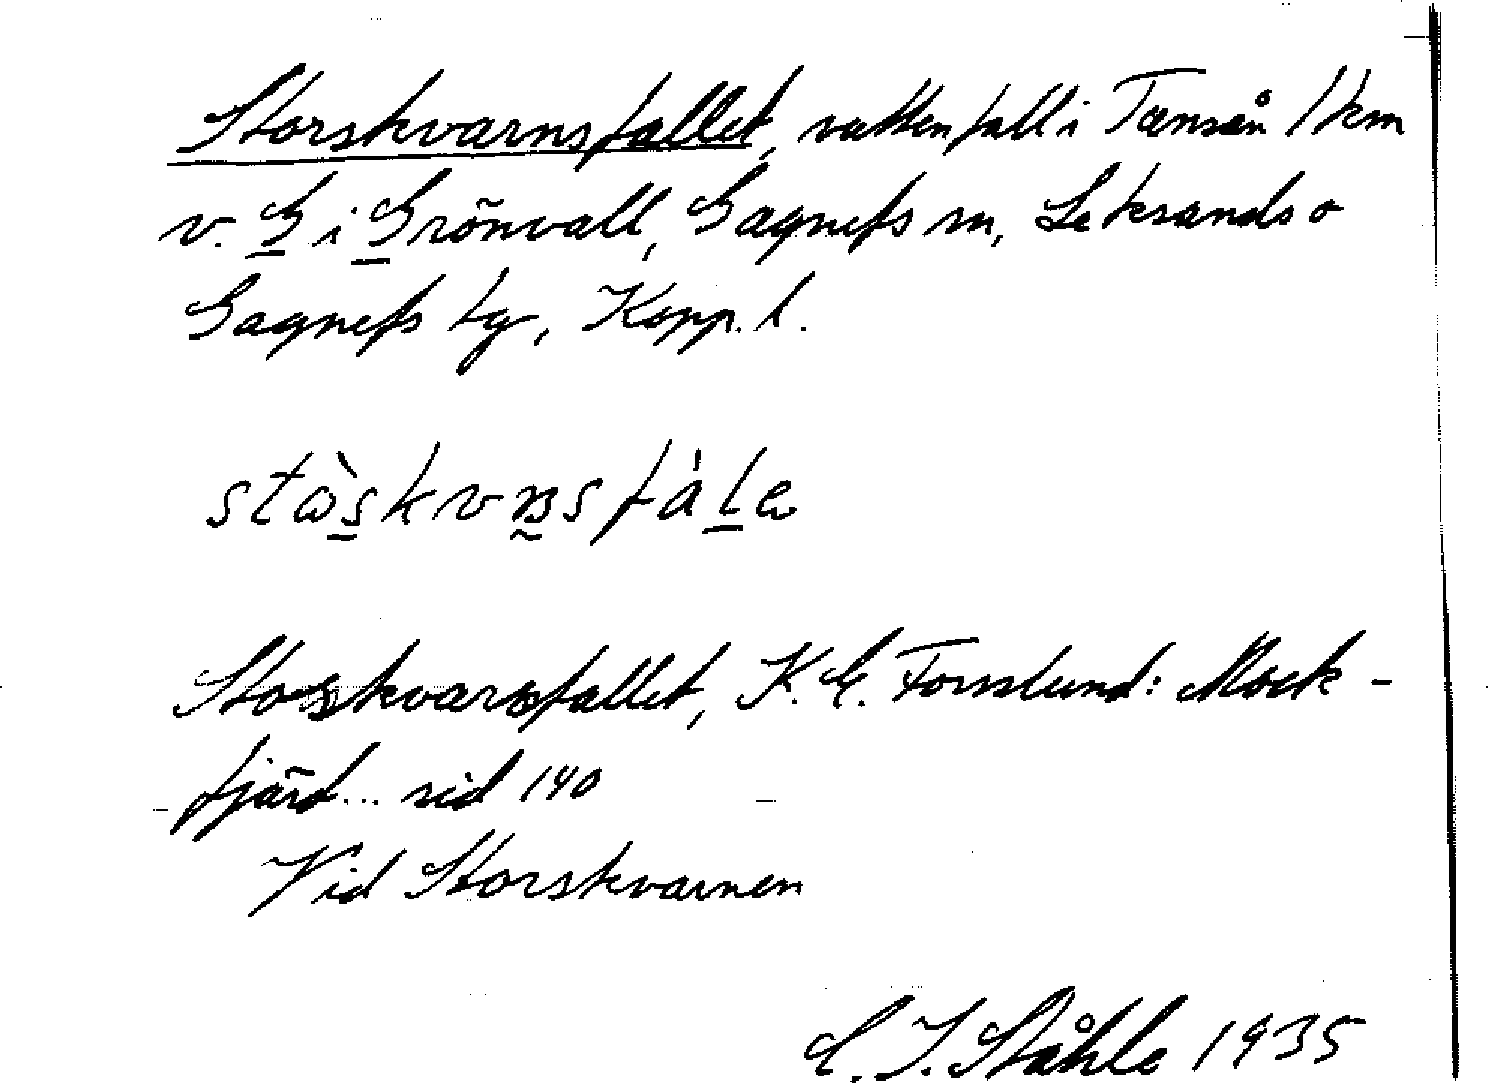 Storskvarnsfallet, vattenfall i Tansån 1 km
v. G i Grönvall, Gagnefs sn, Leksands o
Gagnefs tg, Kopp. l.
Storskvarnsfallet, K. E. Forsslund: Mock-
fjärd... sid 140
Vid Storskvarnen
C. I. Ståhle 1935